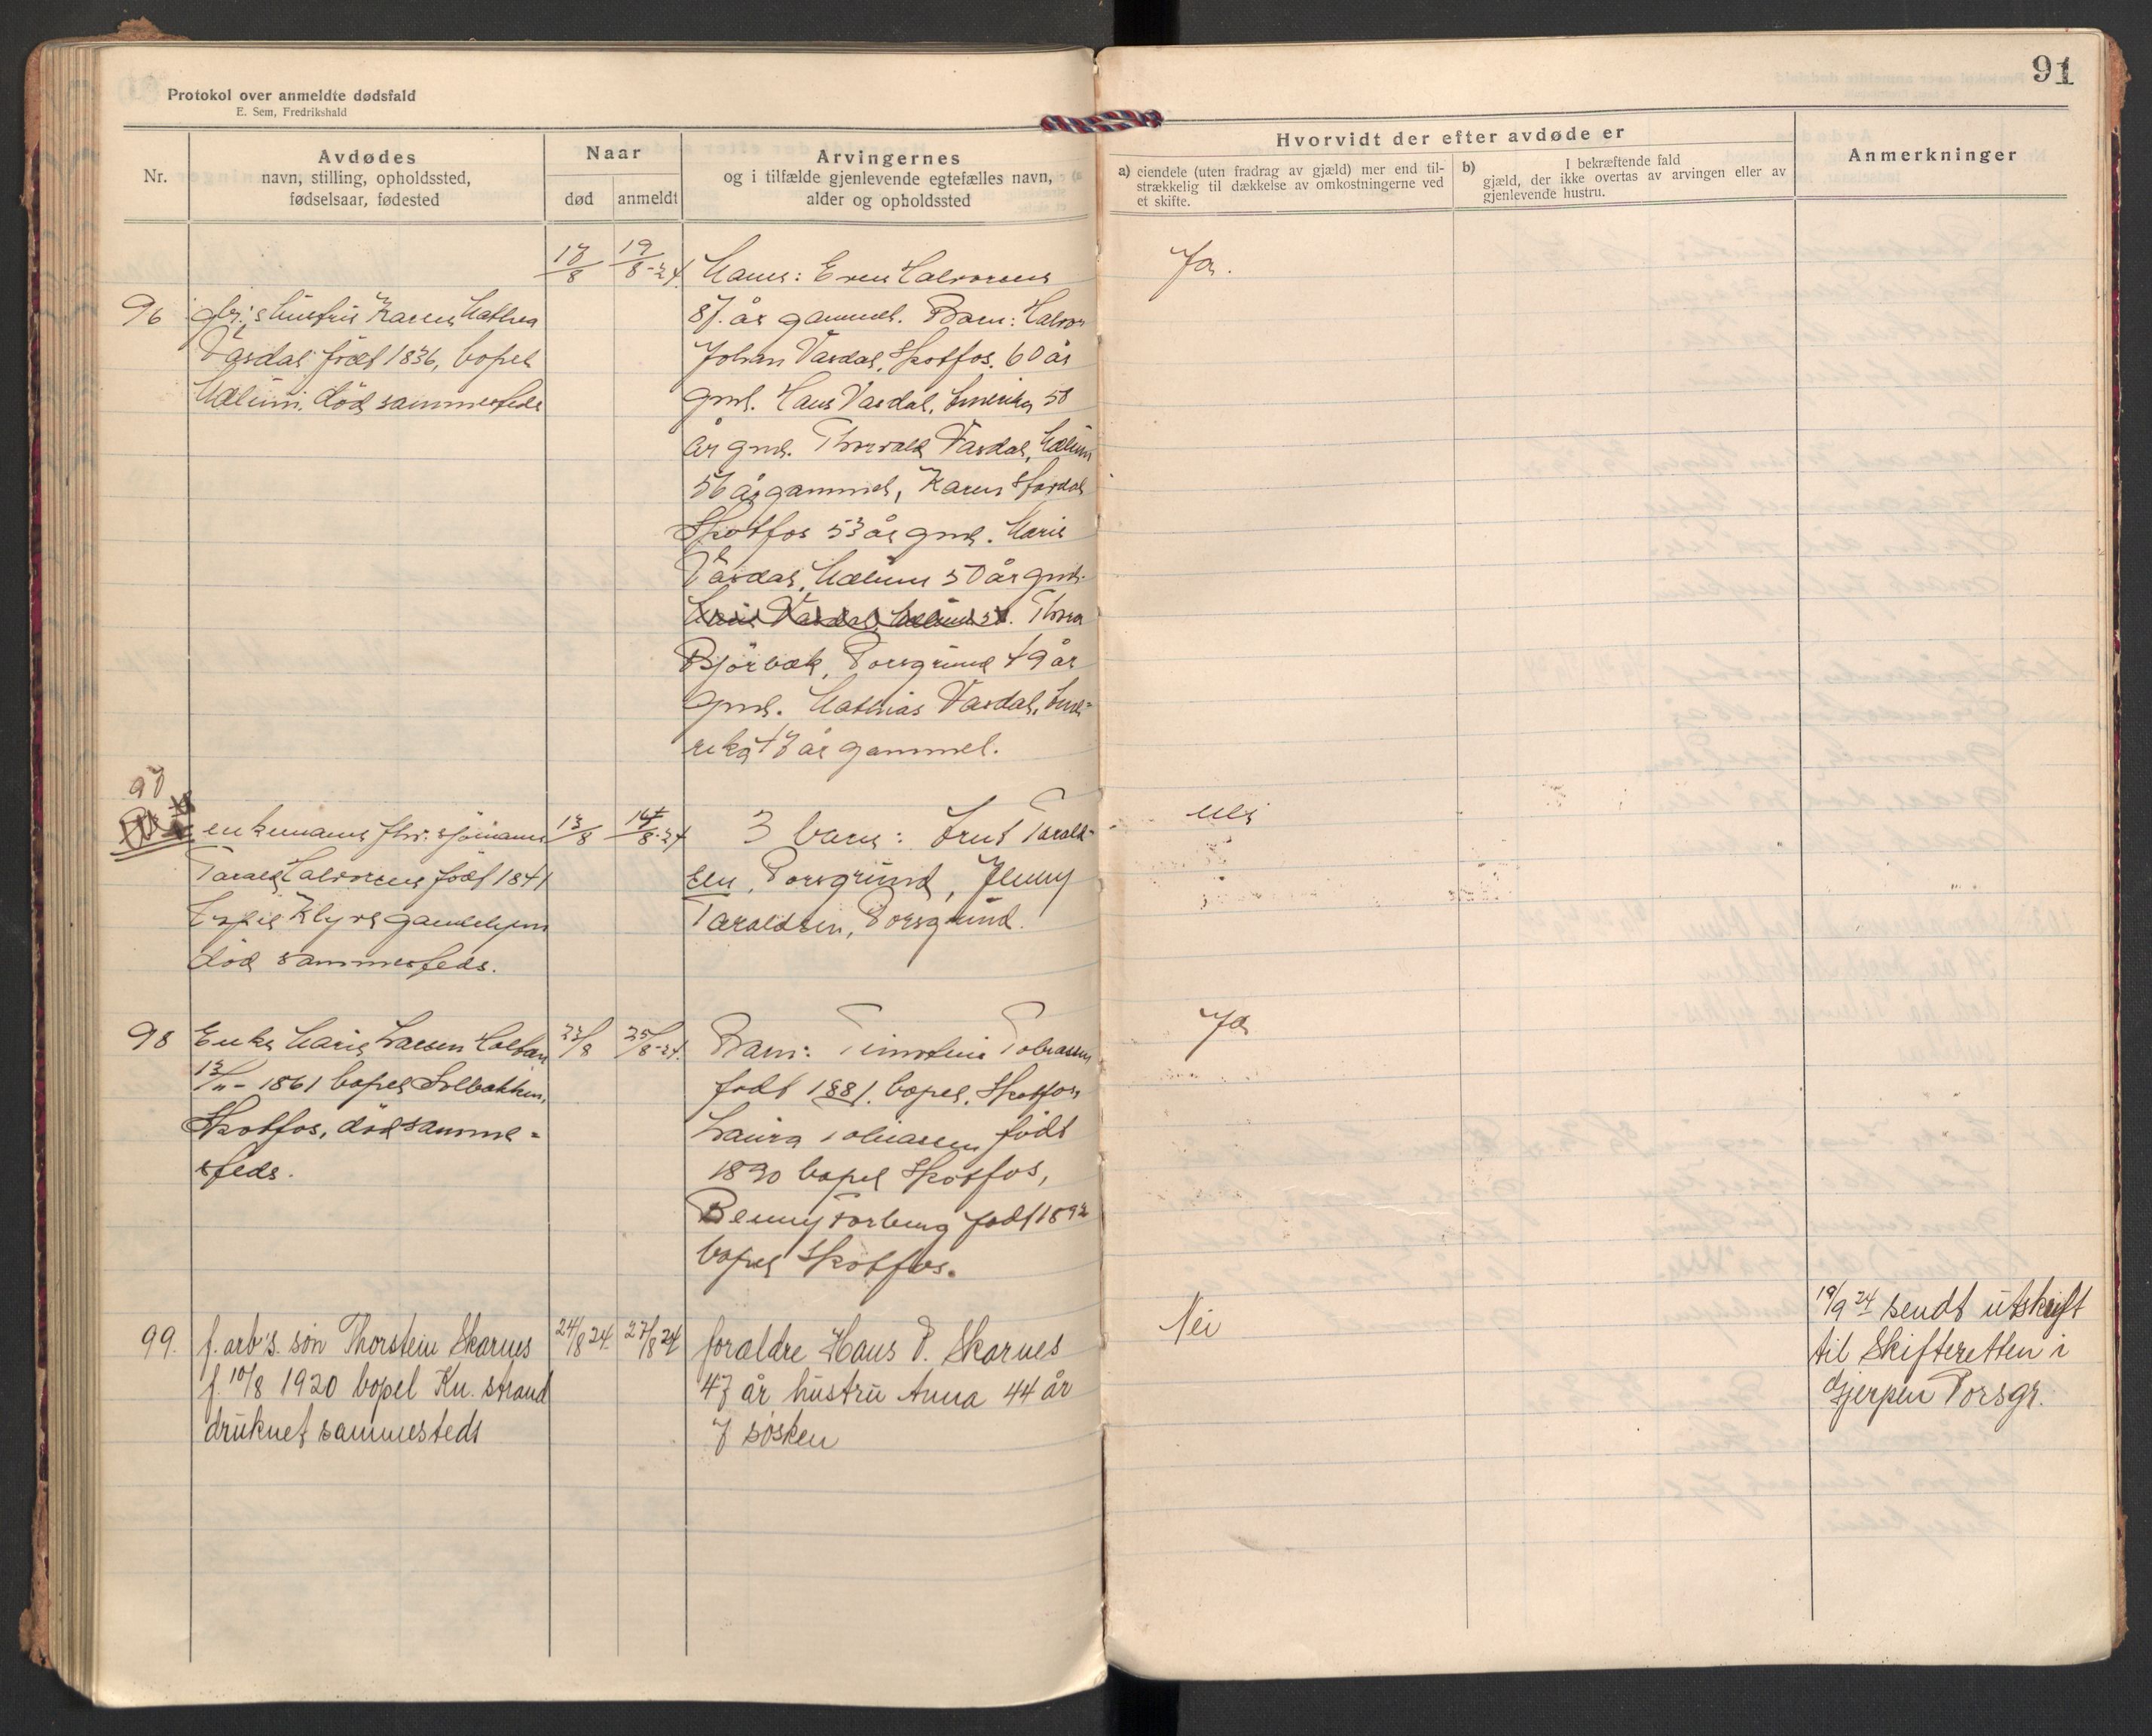 91
Protokol over anmeldte dødsfald
E. Sem, Fredrikshald
Nr.
Avdødes
navn, stilling, opholdssted,
fødselsaar, fødested
Naar
død
anmeldt
Arvingernes
og i tilfælde gjenlevende egtefælles navn,
alder og opholdssted
Hvorvidt der efter avdøde er
a) eiendele (uten fradrag av gjæld) mer end til-
strækkelig til dækkelse av omkostningerne ved
et skifte.
b) I bekræftende fald
gjæld, der ikke overtas av arvingen eller av
gjenlevende hustru.
Anmerkninger
96
hustru Karen Mathea
Vasdal født 1836, bopel
Mælum, död sammesteds
17/8
19/8-24.
Mann: Even Halvorsen
87. år gammel. Barn: Halvor
Johan Vasdal, Skotfos. 60 år
gml. Hans Vasdal, Amerika 58
år gml. Thorvald Vasdal, Mælum
56 år gammel, Karen
Skotfos 53 år gml. Marie
Vasdal, Mælum 50 år gml.
Marie Vasdal, Mælum 50. Thora
Björbæk, Porsgrund 49 år
gml. Mathias Vasdal, Ame-
rika 47 år gammel.
Ja.
97
enkemann fhv. sjömann
Tarald Halvorsen född 1841
Klyve gamlehjem
död sammesteds.
13/8
14/8-24
3 barn: Tarald-
sen, Porsgrund, Jenny
Taraldsen, Porsgrund.
nei
98
Enke Marie Larsen
13/11-1861 bopel Solbakken,
Skotfos, död samme-
steds.
23/8
25/8-24.
Barn: Timoteus Tobiassen
född 1881. bopel. Skotfos
Laura Tobiassen född
1890 bopel Skotfos,
Benny Torberg född 1892
bopel Skotfos.
Ja
99.
f. arb's. søn Thorstein Skarnes
f. 10/8 1920 bopel Kn. strand
druknet sammesteds
24/8 24.
27/8 24
forældre Hans P. Skarnes
47 år hustru Anna 44 år
7 søsken
Nei
19/9 24 sendt utskrift
til Skifteretten i
Gjerpen Porsgr.